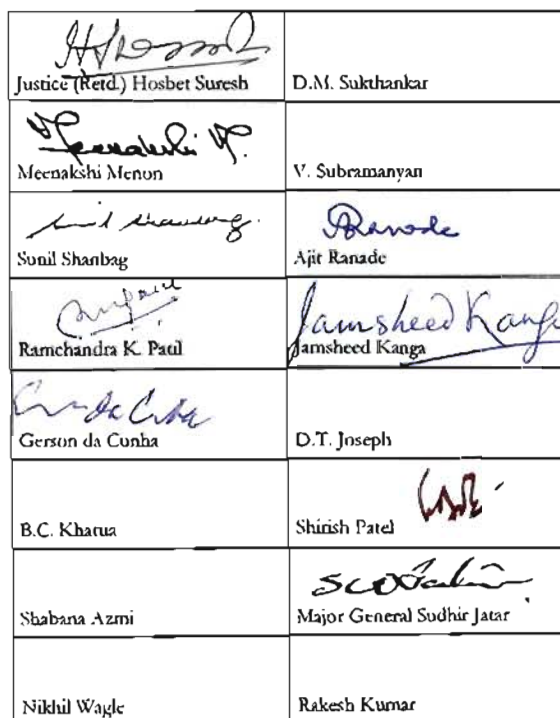 Justice (Retd.) Hosbet Suresh
D.M. Sukthankar
Meenakshi Menon
V. Subramanyan
Sunil Shanbag
Ranade
Ajit Ranade
Ramchandra K. Patil
Jamsheed Kanga
Jamsheed Kanga
Gerson da Cunha
D.T. Joseph
B.C. Khatua
Shirish Patel
Shabana Azmi
Major General Sudhir Jatar
Nikhil Wagle
Rakesh Kumar